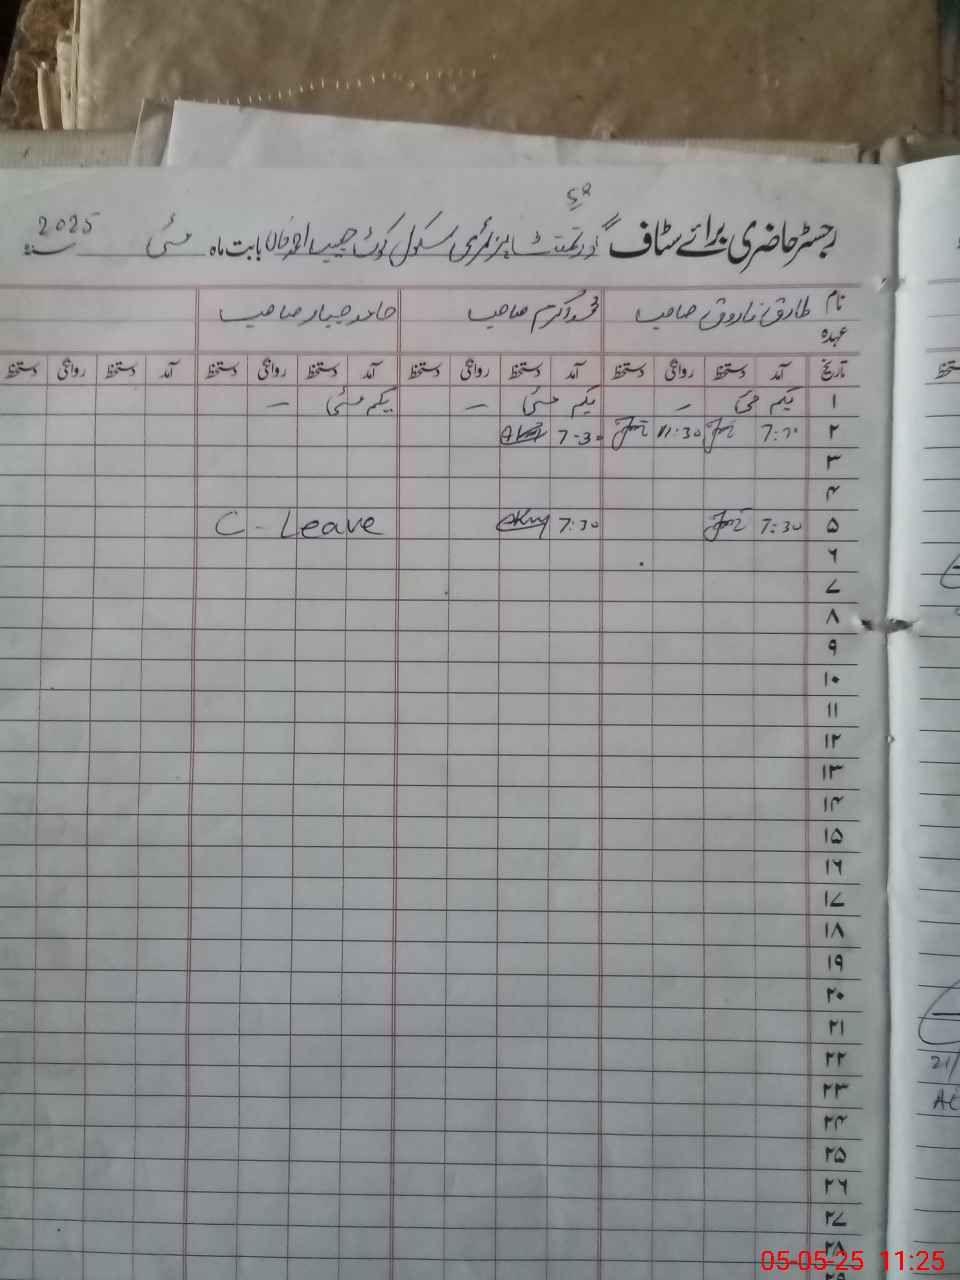 ۴۹
رجسٹر حاضری برائے سٹاف گورنمنٹ پرائمری سکول کوٹ حبیب بابت ماہ مئی سنہ 2025
نام طارق فاروق صاحب محمد اکرم صاحب حامد جبار صاحب
عہدہ
تاریخ آمد دستخط روانگی دستخط آمد دستخط روانگی دستخط آمد دستخط روانگی دستخط آمد دستخط روانگی دستخط
۱ یکم مئی – یکم مئی – یکم مئی –
۲ 7:30 11:30 7-30
۳
۴
۵ 7:30 7:30 C-Leave
۶
۷
۸
۹
۱۰
۱۱
۱۲
۱۳
۱۴
۱۵
۱۶
۱۷
۱۸
۱۹
۲۰
۲۱
۲۲
۲۳
۲۴
۲۵
۲۶
۲۷
۲۸
۲۹
دستخط
21/
05-05-25 11:25